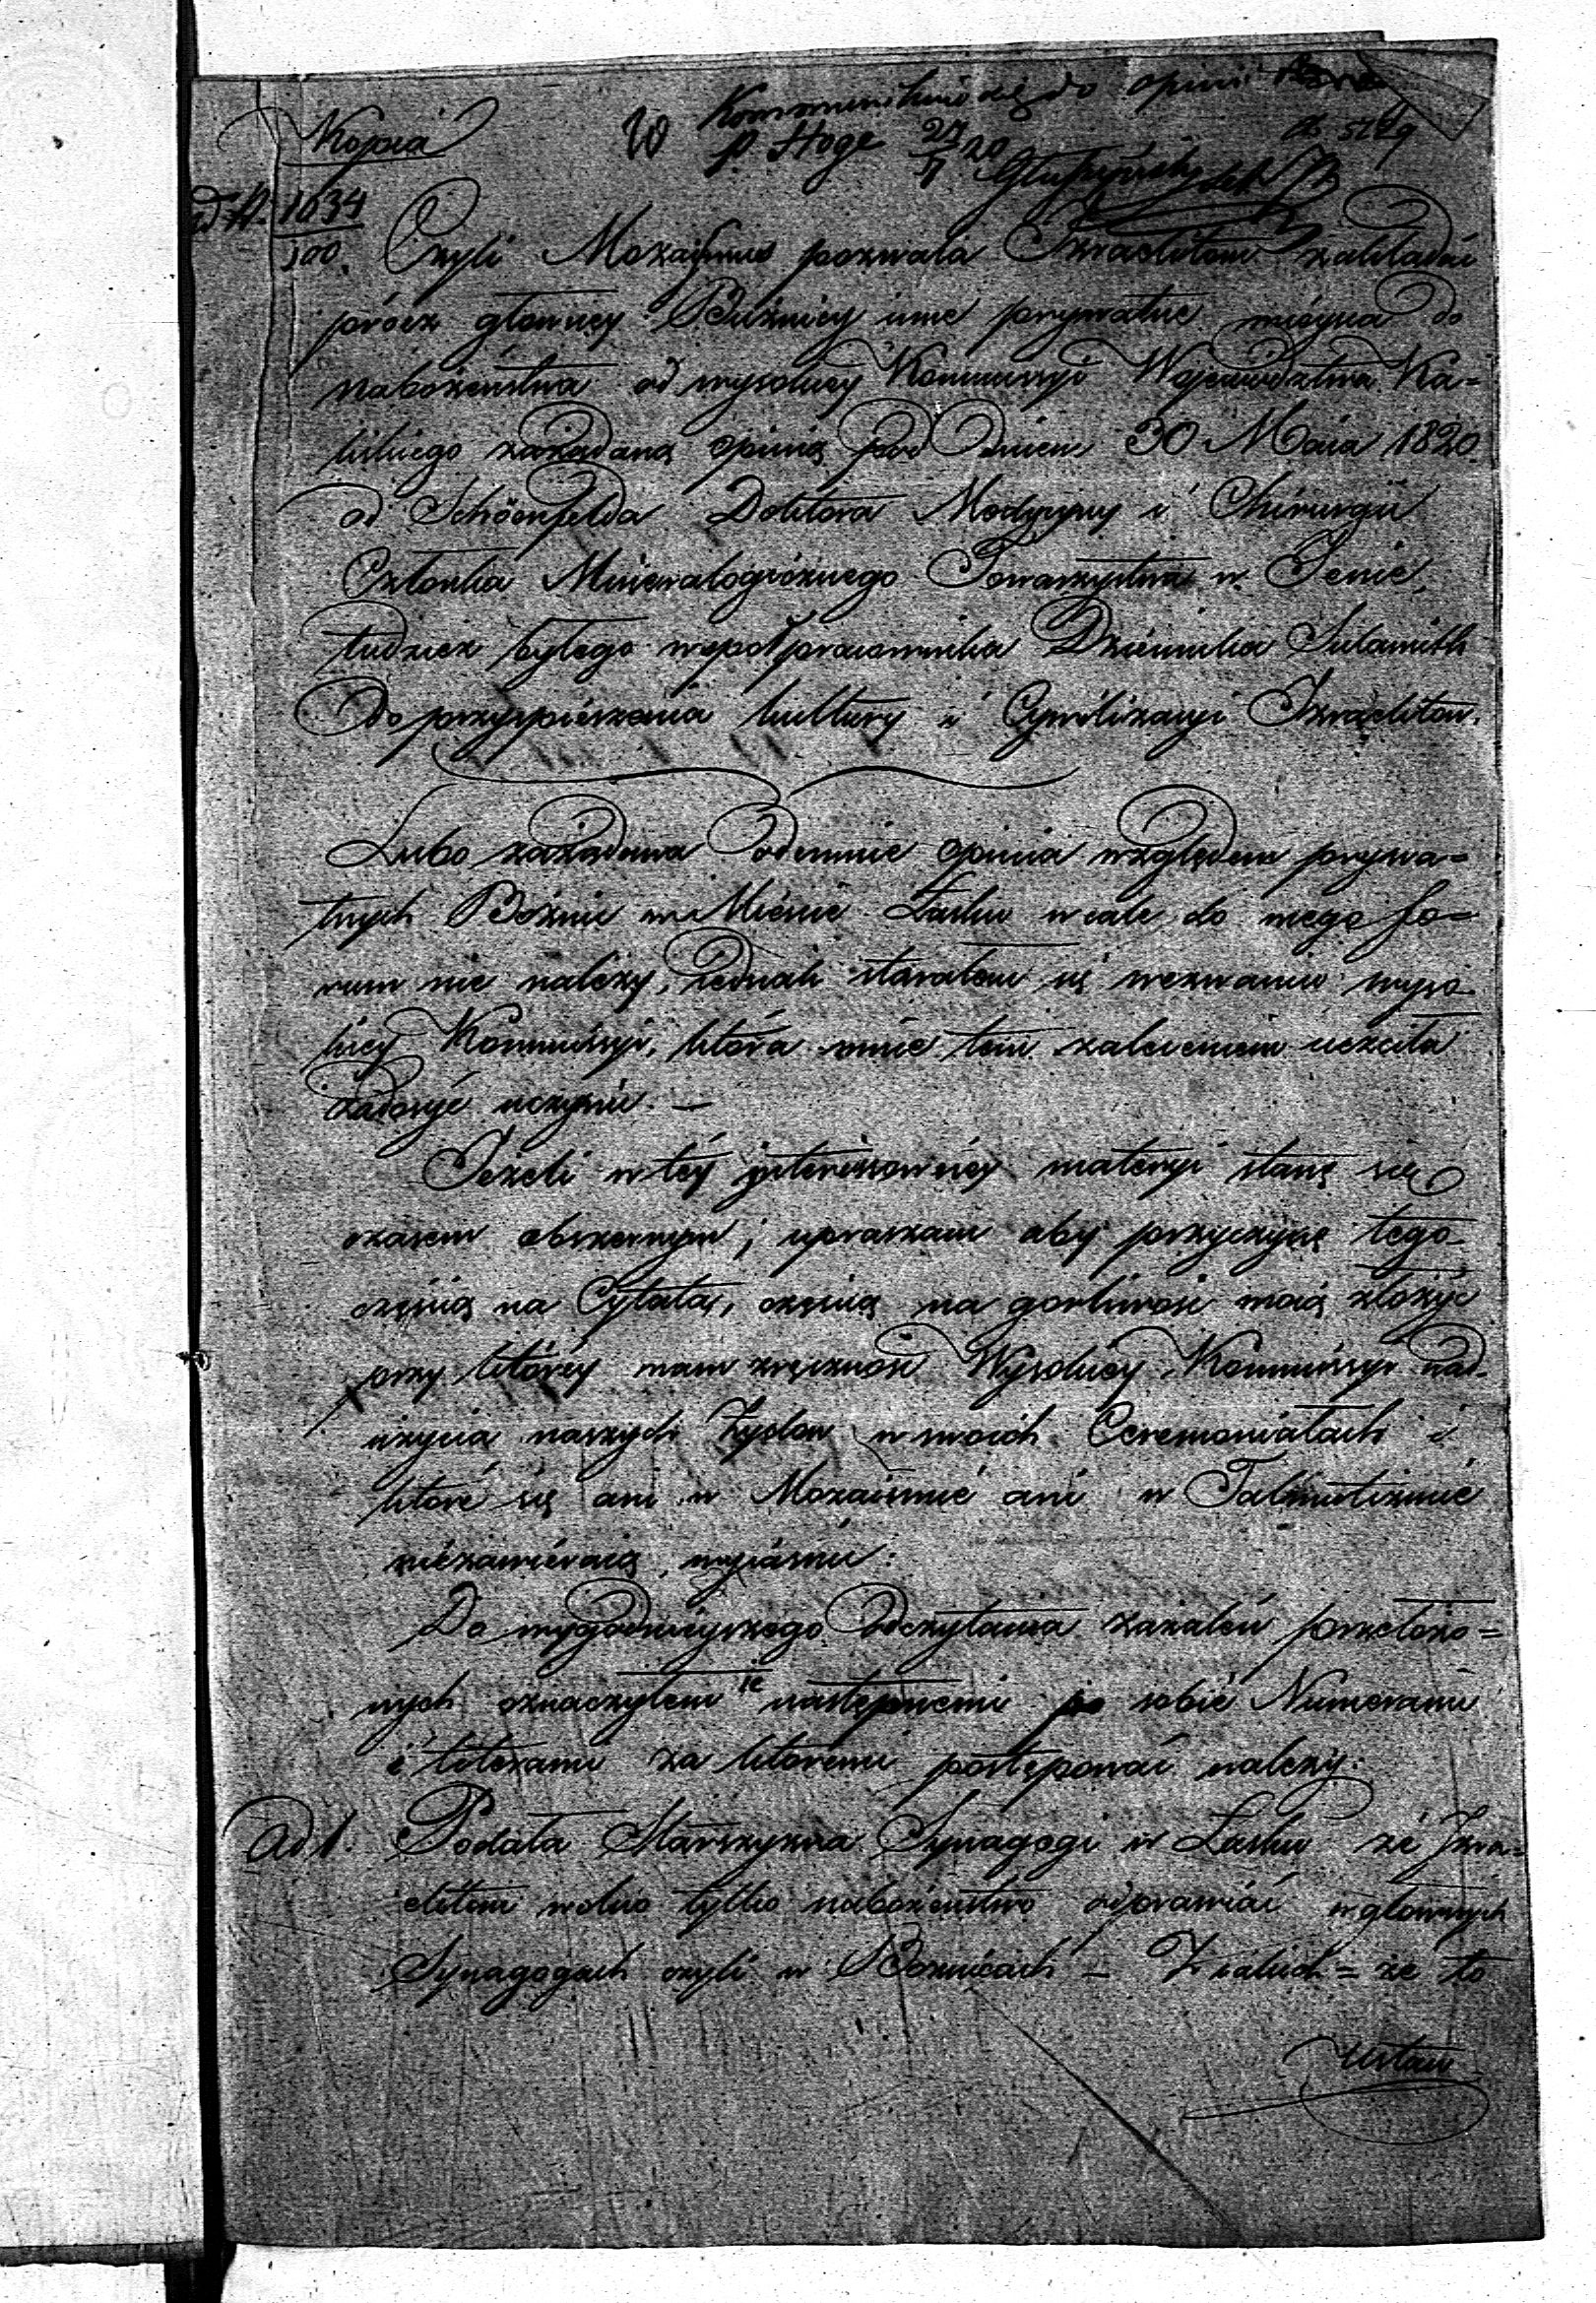 Kommunikuie się do opinii
Kopia
W
p. Hoge 27/II 20
ad N. 1634/100.
Czyli Mozaismus pozwala Izraelitom zakładać
prócz głowney Buźnicy inne prywatne mieysca do
nabożeństwa od wysokiey Kommissyi Woiewództwa Ka-
liskiego zażądaną opinią pod Dniem 30 Maia 1820.
od Schöenfelda Doktora Medycyny i Chirurgii
Członka Mineralogicznego Towarzystwa w Jenie,
tudzież byłego wspołpracownika Dziennika Sulamith
do przyspieszenia kultury i Cywilizacyi Izraelitow.
Lubo zażądana odemnie opinia względem prywa-
tnych Bożnic w Mieście Łasku wcale do mego fo-
rum nie należy, iednak starałem się wezwaniu wyso-
kiey Kommissyi, która mnie tem zaleceniem uczciła
zadosyć uczynić. —
Jeżeli w tey interessowney materyi stanę się
czasem obszernym; upraszam aby przyczynę tego
częścią na Cytata, częścią na gorliwość moią złożyć
przy którey mam zręczność Wysokiey Kommissyi nad-
użycia naszych Żydow w swoich Ceremoniałach i
które się ani w Mozaismie ani w Talmutizmie
niezawieraią, wyiaśnić.
Do wygodnieyszego odczytania zażaleń przełożo=
nych oznaczyłem ie następnemi po sobie Numerami
i literami za któremi postępować należy:
Ad 1. Podała Starszyzna Synagogi w Łasku że Izra=
elitom wolno tylko nabożeństwo odprawiać w głownych
Synagogach czyli w Bożnicach – Żydach = że to
Ustaw